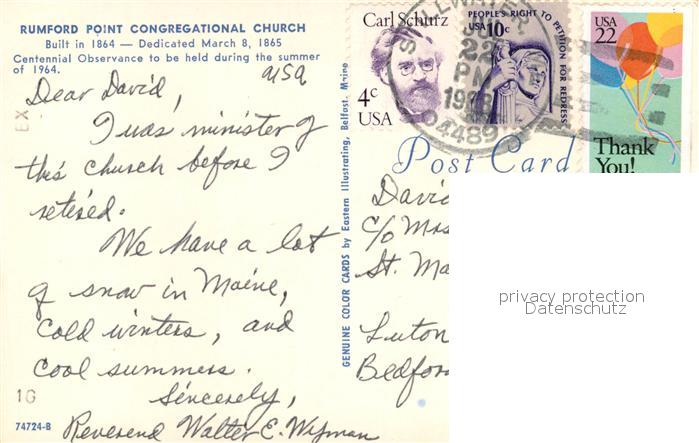 RUMFORD POINT CONGREGATIONAL CHURCH
Built in 1864 — Dedicated March 8, 1865
Centennial Observance to be held during the summer
of 1964.
USA
Dear David,
I was minister of
this church before I
retired.
We have a lot
of snow in Maine,
cold winters, and
cool summers.
Sincerely,
Reverend Walter E. Wyman
EX
1G
74724-B
GENUINE COLOR CARDS by Eastern Illustrating, Belfast, Maine
Carl Schurz
4c
USA
PEOPLE'S RIGHT TO PETITION FOR REDRESS
USA 10c
STILLWATER
22
PM
04489
USA
22
Thank
You!
Post Card
David
c/o
St.
Luton
privacy protection
Datenschutz